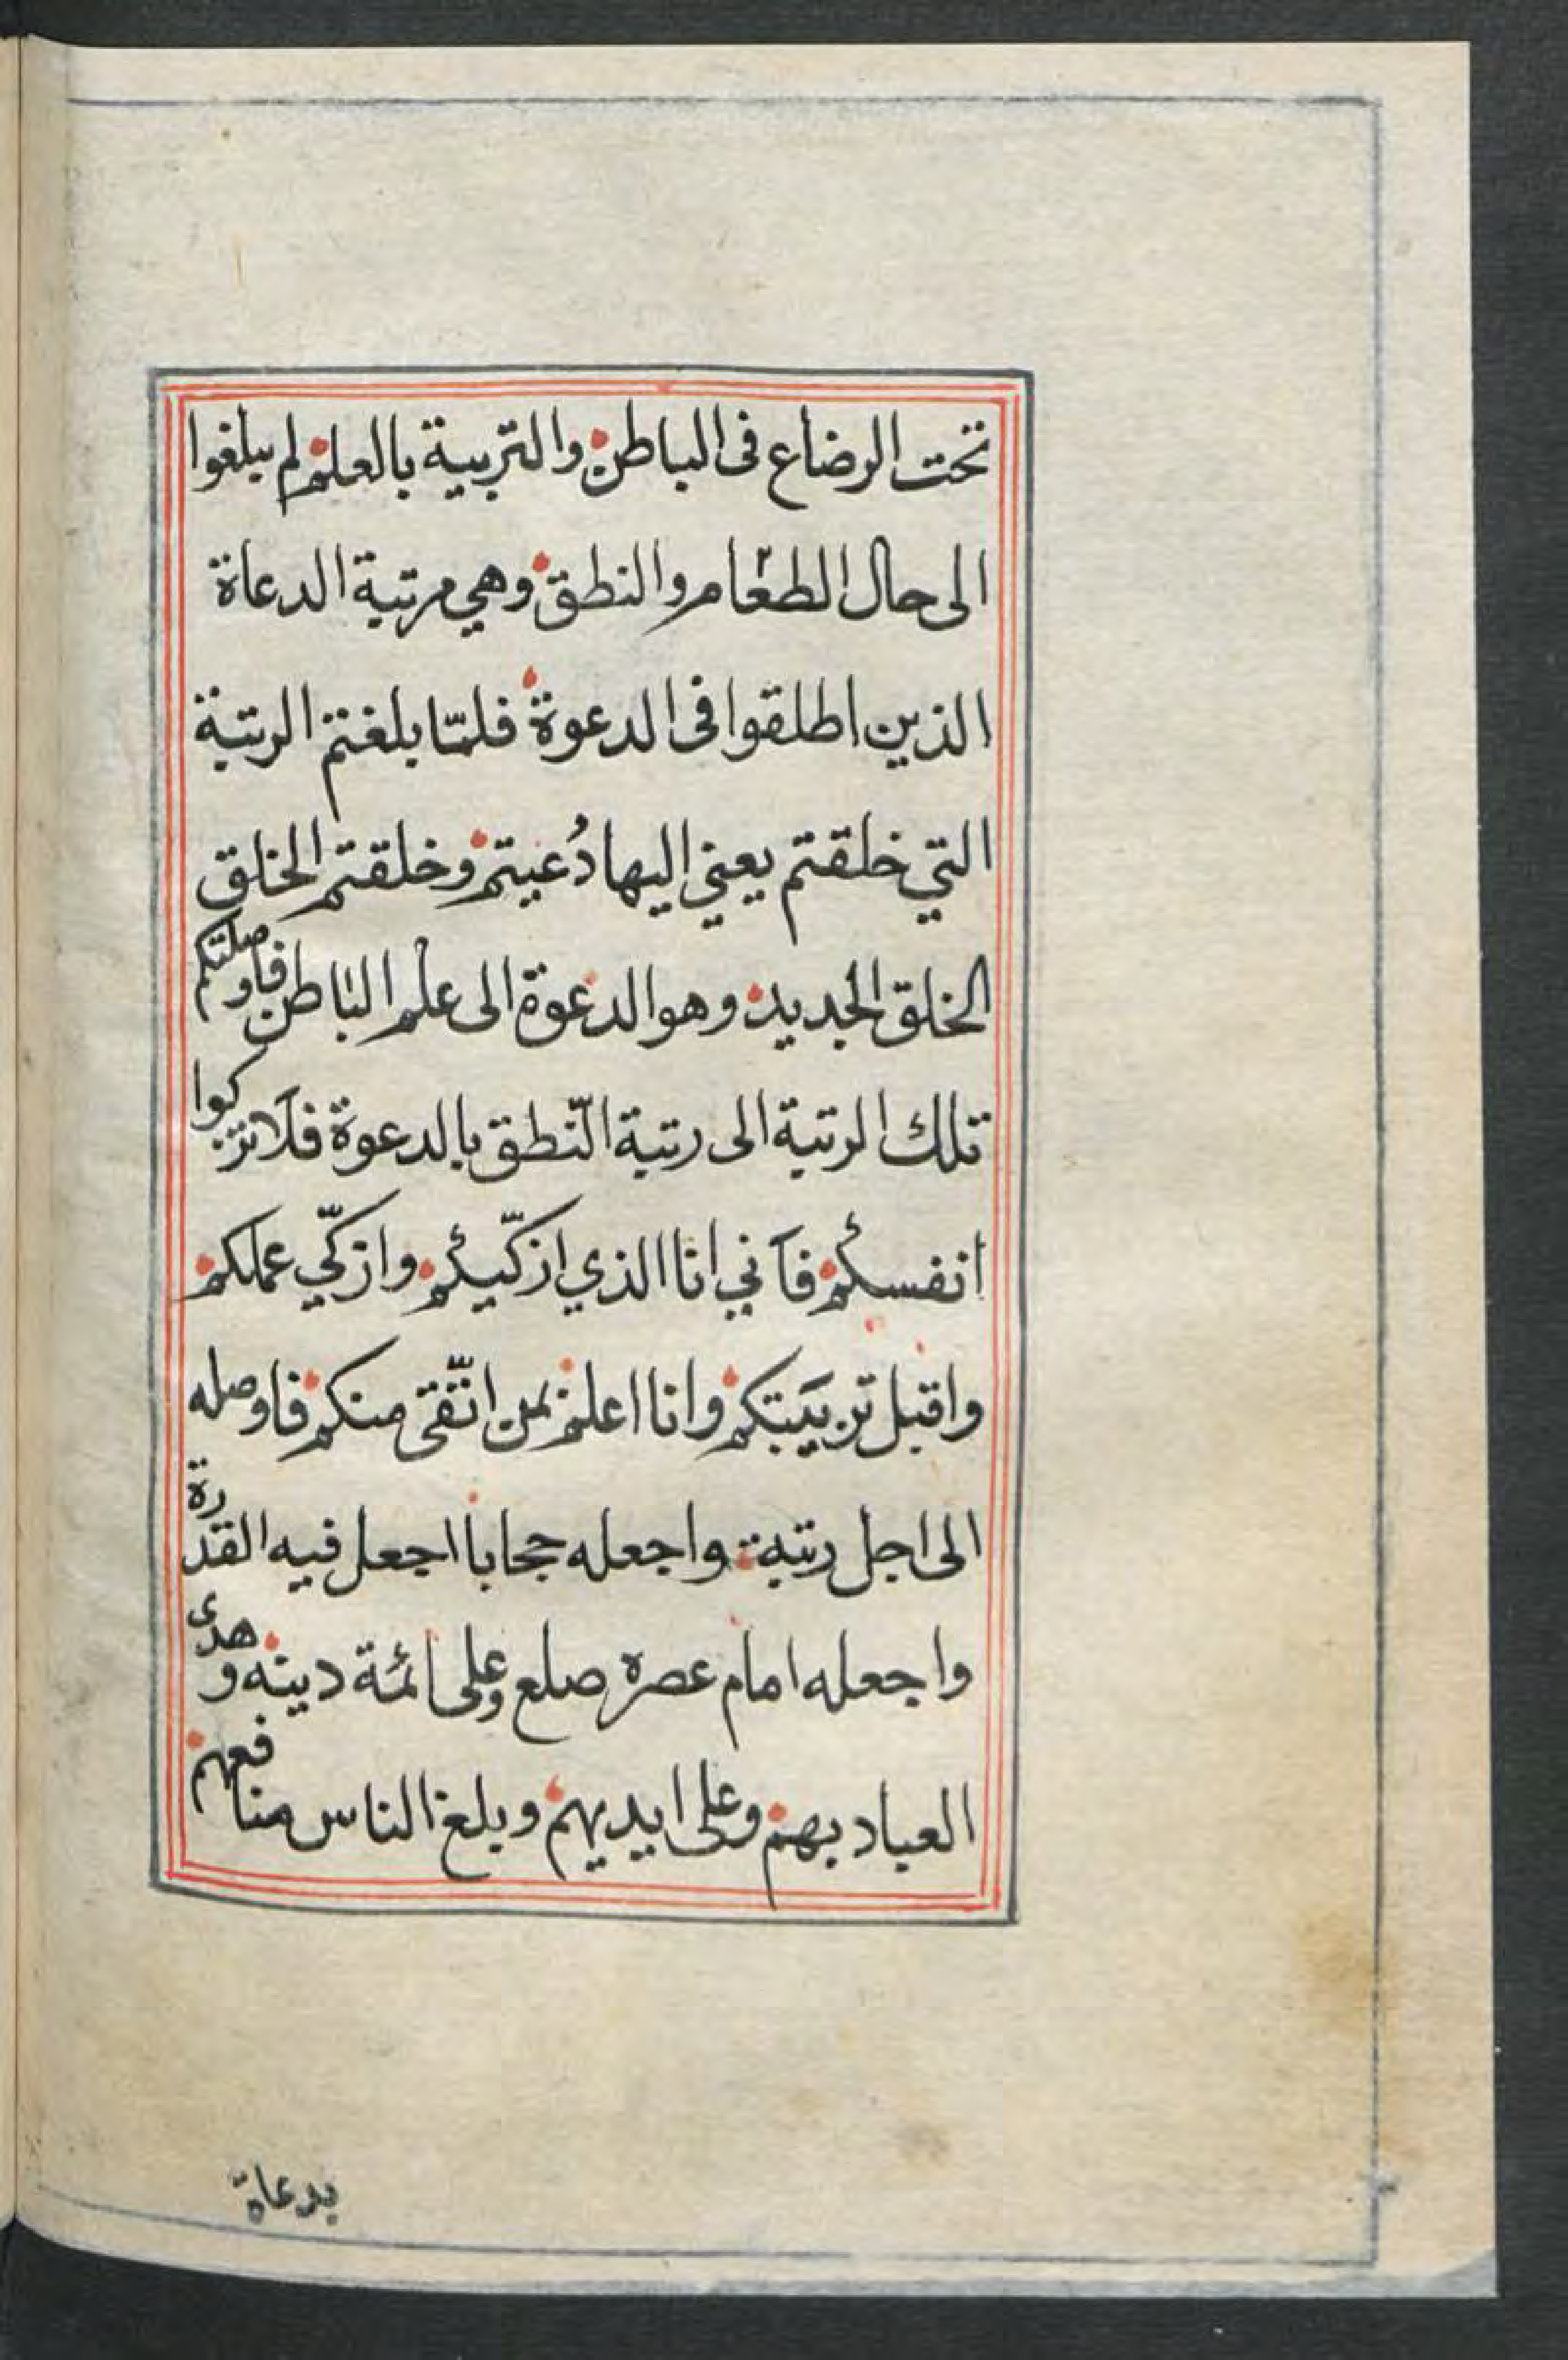 تحت الرضاع فى الباطن والتربية بالعلم لم يبلغوا
الى حال الطعام والنطق وهي مرتبة الدعاة
الذين اطلقوا فى الدعوة فلمّا بلغتم الرتبة
التي خلقتم يعني اليها دُعيتم وخلقتم الخلق
الخلق الجديد وهو الدعوة الى علم الباطن فاوصلتكم
تلك الرتبة الى رتبة النّطق بالدعوة فلا تزكوا
انفسكم فاني انا الذي ازكّيكم وازكّي عملكم
واقبل تربيتكم وانا اعلم بمن اتّقى منكم فاوصله
الى اجل رتبة واجعله حجابا اجعل فيه القدرة
واجعله امام عصره صلع وعلى ائمة دينه وهدى
العباد بهم وعلى ايديهم وبلغ الناس منافعهم
بدعاة